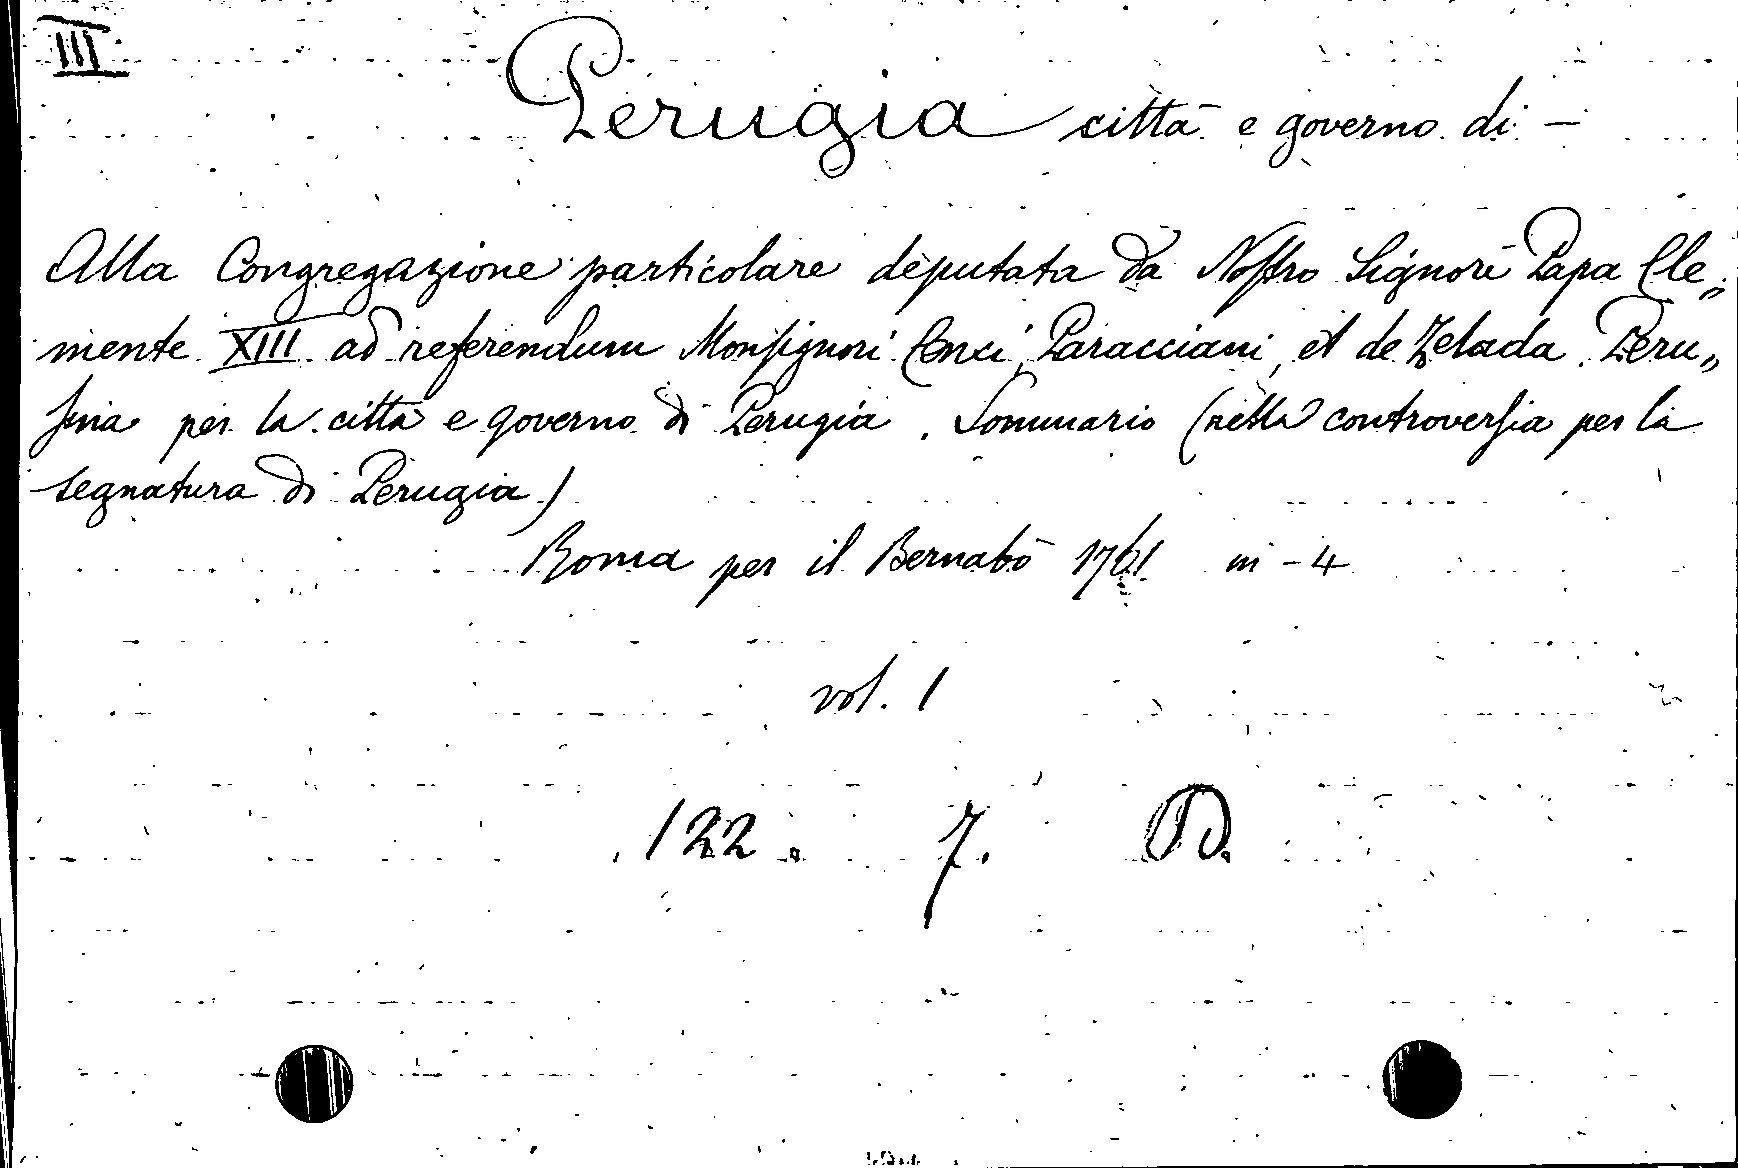 III
Perugia città e governo di —
Alla Congregazione particolare deputata da Nostro Signore Papa Cle„
mente XIII ad referendum Monsignori Cenci, Paracciani, et de Zelada. Peru„
sina per la città e governo di Perugia. Sommario (nella controversia per la
segnatura di Perugia)
Roma per il Bernabò 1761 in - 4
vol. 1
122. 7.